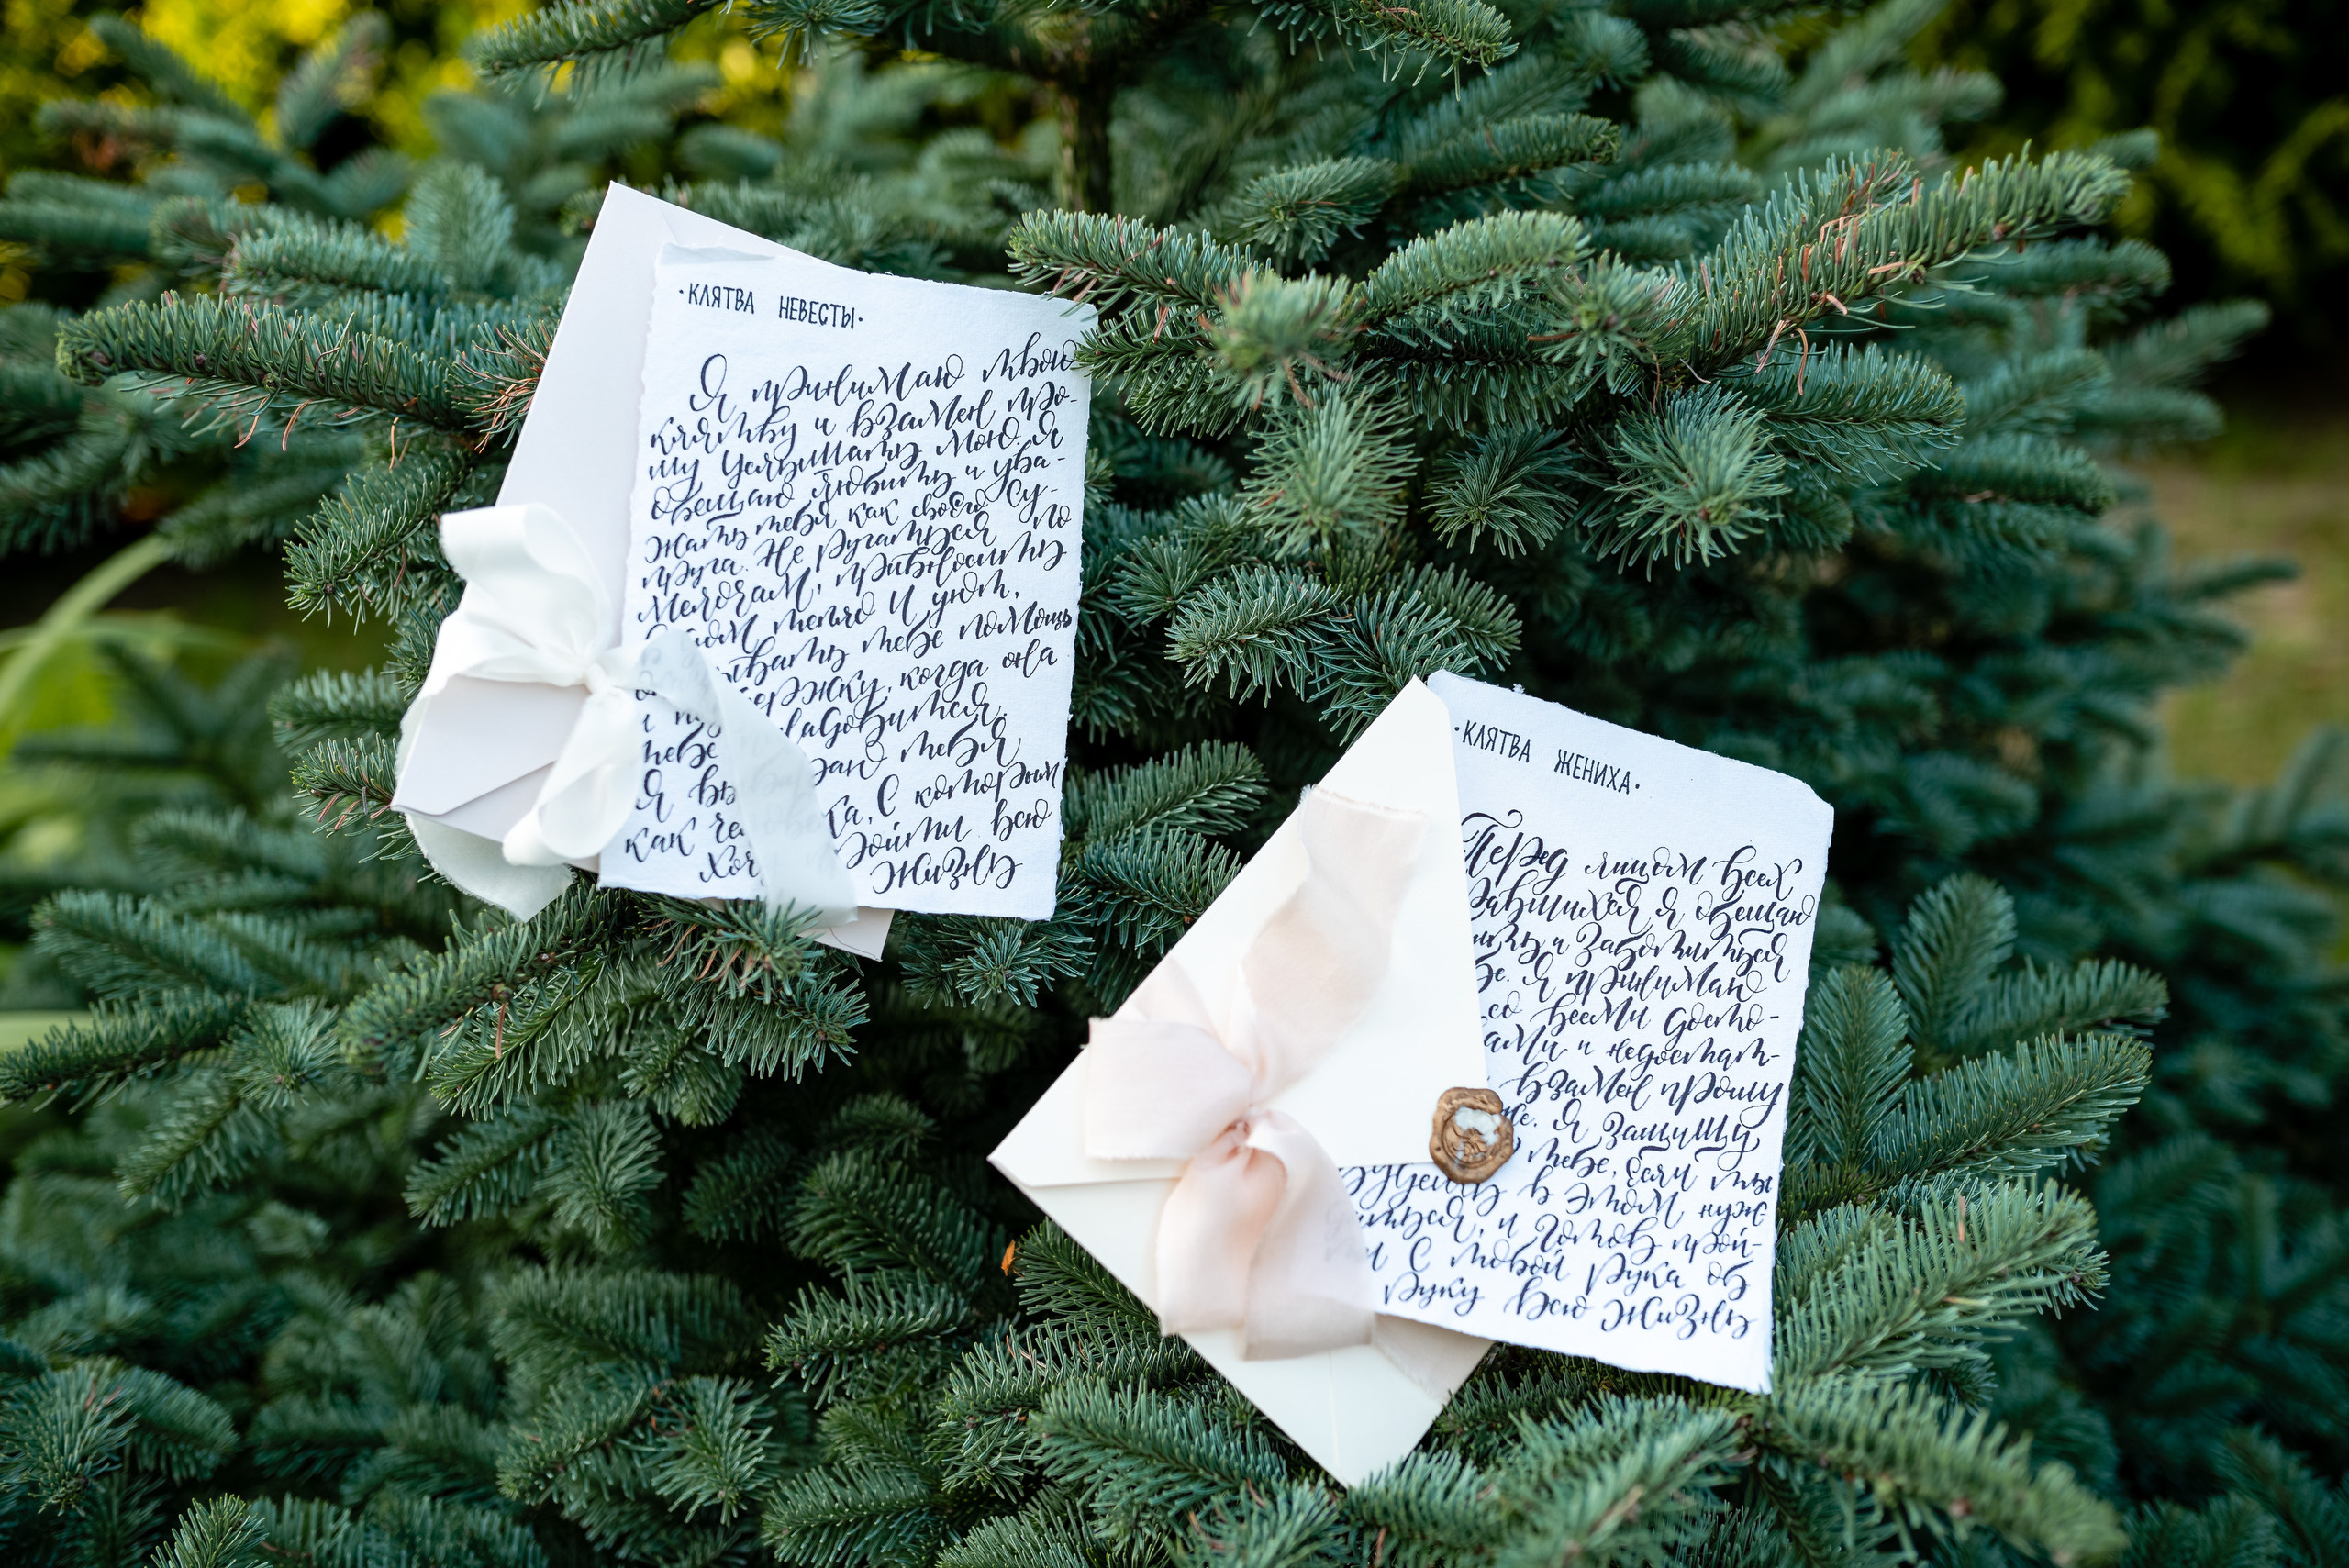 ·КЛЯТВА НЕВЕСТЫ·
Я принимаю твою
клятву и взамен про-
шу услышать мою. Я
обещаю любить и ува-
жать тебя как своего су-
пруга. Не ругаться по
мелочам, привносить
в дом тепло и уют,
тебе помощь
когда она
тебе
Я тебя
как с которым
всю
жизнь
·КЛЯТВА ЖЕНИХА·
Перед лицом всех
я обещаю
и заботиться
Я принимаю
со всеми досто-
ами и недостат-
взамен прошу
Я защищу
тебе, если ты
будешь в этом нуж
и готов прой-
и с тобой рука об
руку всю жизнь